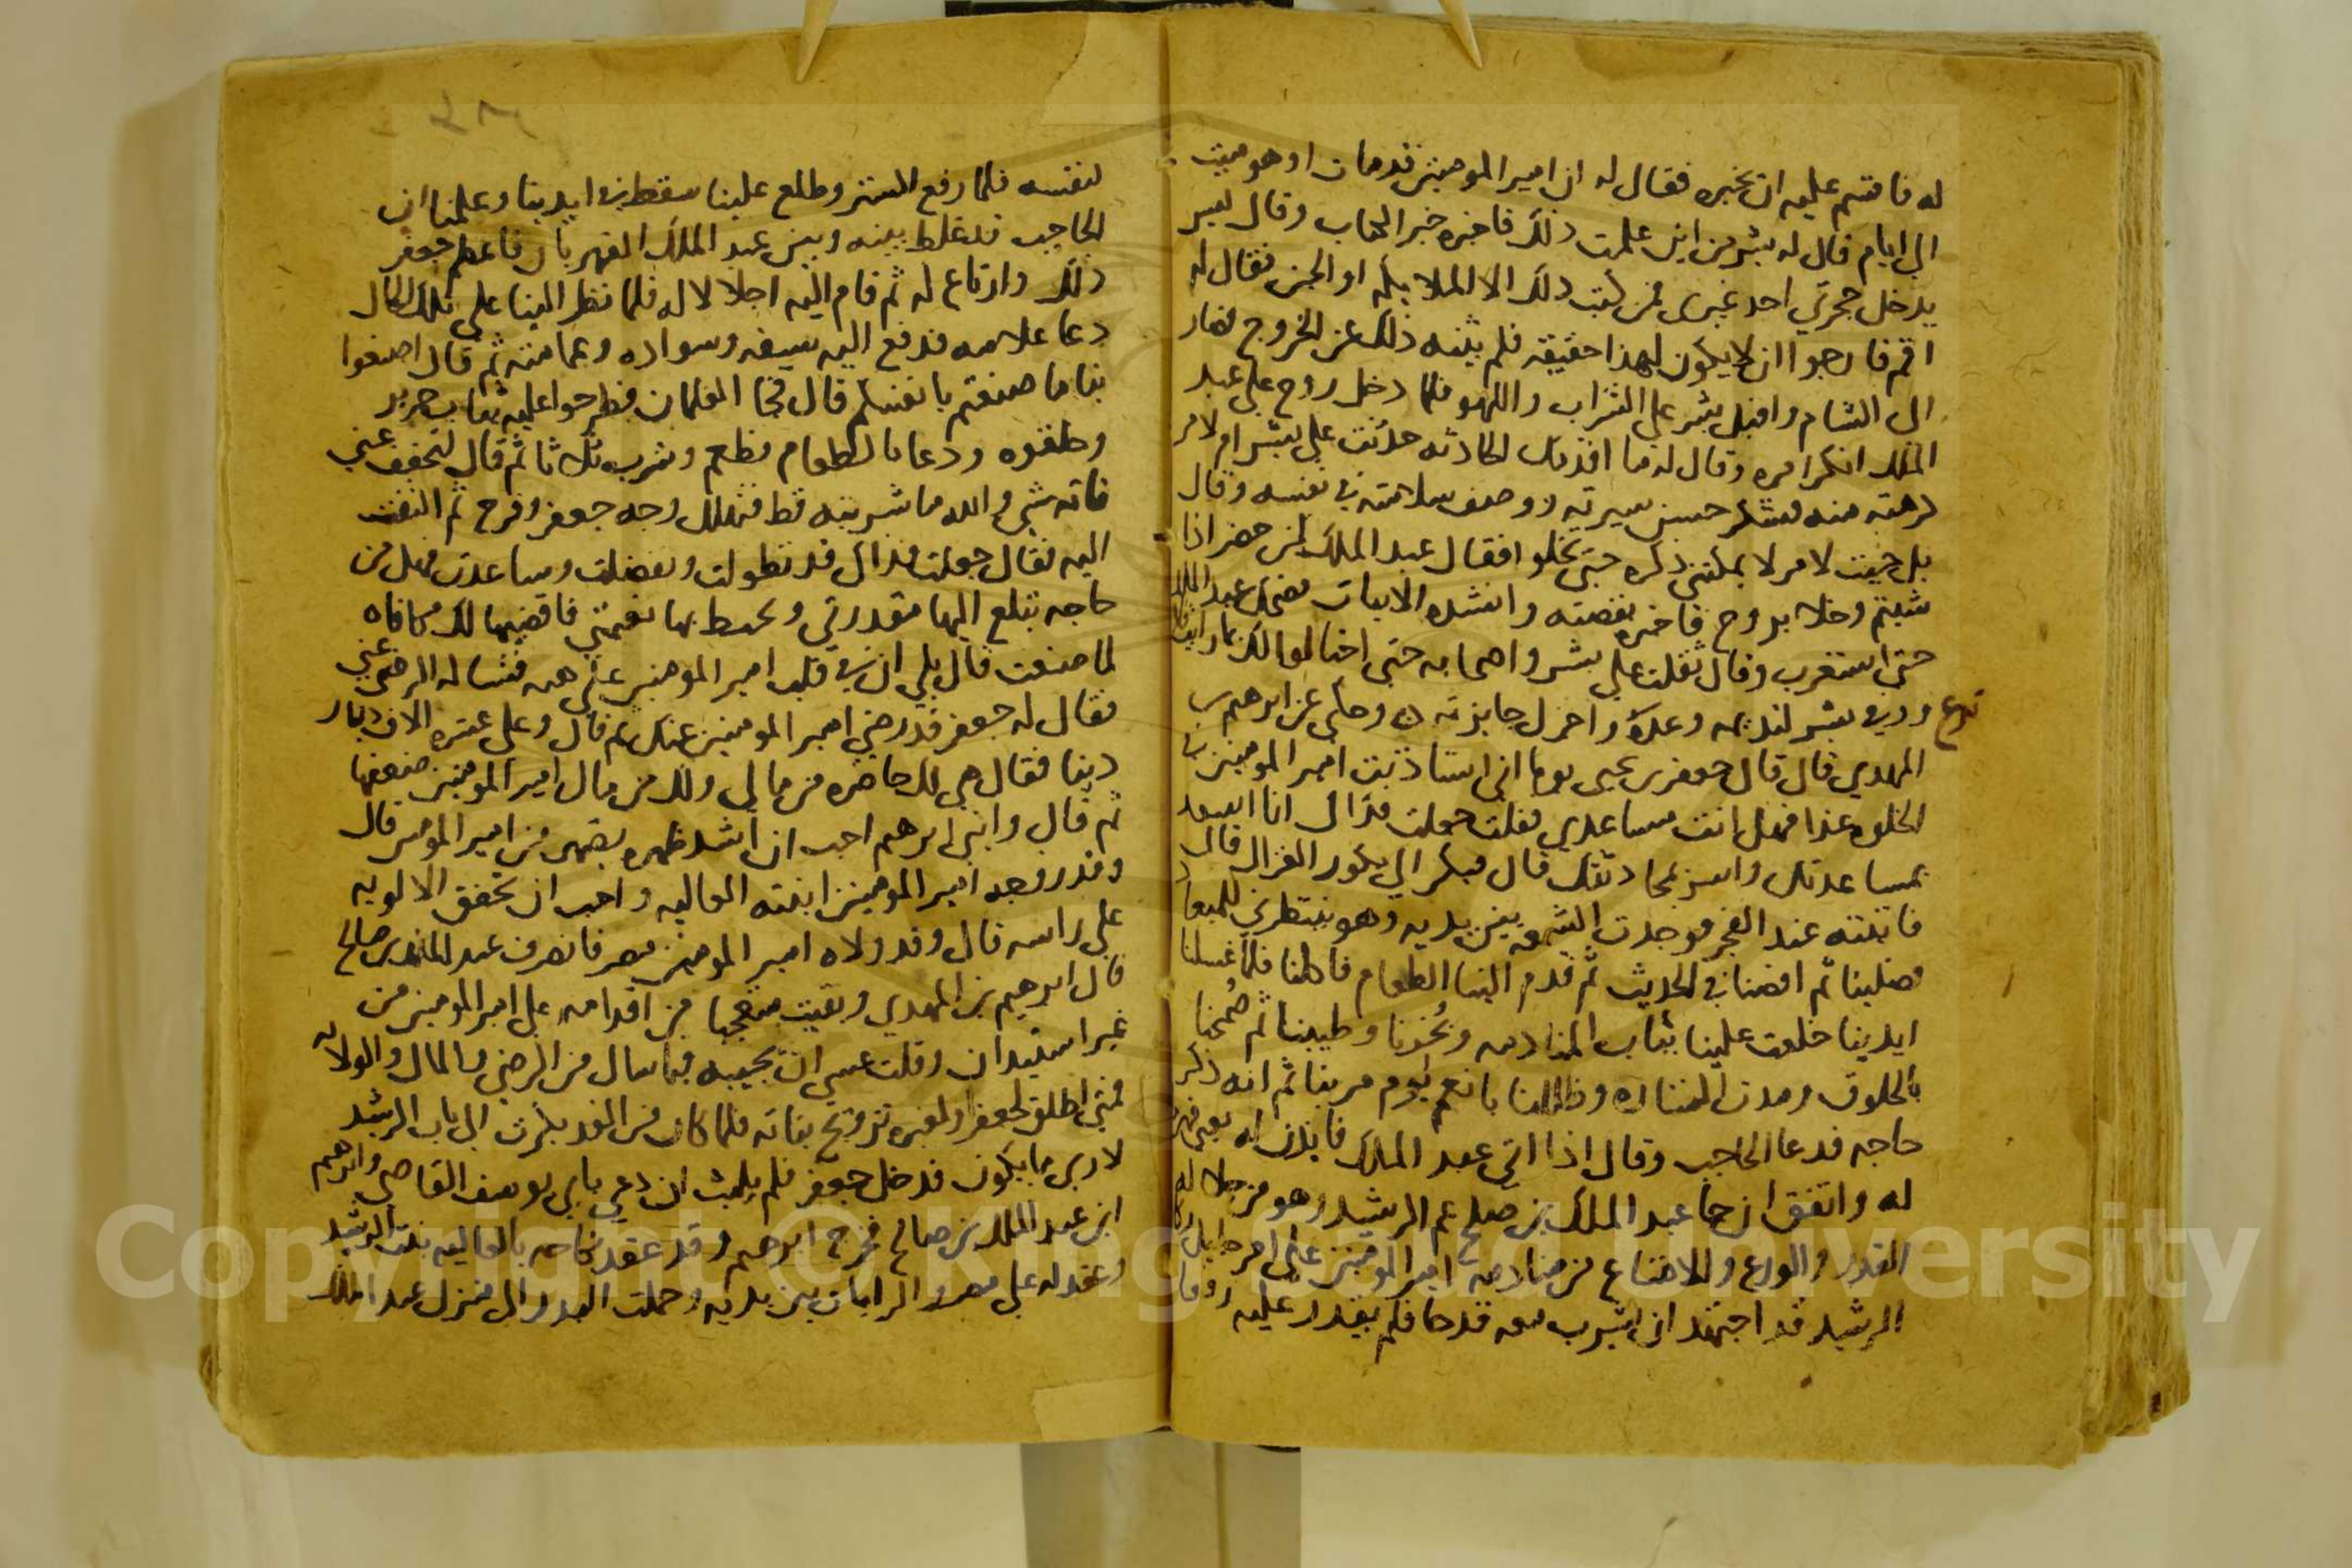 له فاقسم عليه ان يخبره فقال له ان امير المومنين قد مات او هو ميت
الي ايام قال له بشر من اين علمت ذلك فاخبره خبر الكتاب وقال ليس
يدخل حجرتي احد غيري فمن كتب ذلك الا الملايكه او الجن فقال له
اقم فارجوا ان لا يكون لهذا حقيقه فلم يثنه ذلك عن الخروج فسار
الى الشام واقبل بشر على الشراب واللهو فلما دخل روح علي عبد
الملك انكر امره وقال له ما اقدمك الحادثه حدثت علي بشر ام لامر
كرهته منه فشكر حسن سيرته ووصف سلامته في نفسه وقال
بل جيت لامر لا يمكنني ذكره حتى تخلوا فقال عبد الملك لمن حضر اذا
شيتم وخلا بروح فاخبره بقصته وانشده الابيات فضحك عبد الملك
حتى استغرب وقال ثقلت علي بشر واصحابه حتى احتالوا لك بما رايت
نوع وروي بشر لنديمه وعدك واجزل جايزته وحكي عن ابرهيم بن
المهدي قال قال جعفر بن يحيى يوما اني استاذنت امير المومنين في
الخلوه غدا فهل انت مساعدي فقلت جعلت فداك انا اسعد
بمساعدتك واسر بمحادثتك قال فبكر الي بكور الغراب قال
فاتيته عند الفجر فوجدت الشمعه بين يديه وهو ينتظرني للميعاد
فصلينا ثم افضنا في الحديث ثم قدم الينا الطعام فاكلنا فلما غسلنا
ايدينا خلعت علينا ثياب المنادمه وبُخرنا وطيبنا ثم ضُمخنا
بالخلوق ومدت الستاره وظللنا بانعم يوم مر بنا ثم انه ذكر
حاجه فدعا الحاجب وقال اذا اتى عبد الملك فايذن له يعني قهرمان
له واتفق ان جا عبد الملك بن صلح عم الرشيد وهو من جلاله
القدر والورع والامتناع من منادمة امير المومنين علي امر جليل وكان
الرشيد قد اجتهد ان يشرب معه قدحا فلم يقدر عليه
لنفسه فلما رفع الستر وطلع علينا سقط في ايدينا وعلمنا ان
الحاجب قد غلط بينه وبين عبد الملك القهرمان فاعظم جعفر
ذلك وارتاع له ثم قام اليه اجلالا له فلما نظر الينا علي تلك الحال
دعا غلامه فدفع اليه سيفه وسواده وعمامته ثم قال اصنعوا
بنا ما صنعتم بانفسكم قال فجا الغلمان فطرحوا عليه ثياب حرير
وخلقوه ودعا بالطعام فطعم وشرب ثلاثا ثم قال لتخفف عني
فانه شي والله ما شربته قط فتهلل وجه جعفر وفرح ثم التفت
اليه فقال جعلت فداك قد تطولت وتفضلت وساعدت فهل من
حاجه تبلغ اليها مقدرتي وتحيط بها نعمتي فاقضيها لك مكافاه
لما صنعت قال بلي ان في قلب امير المومنين علي هنه فتساله الرضي عني
فقال له جعفر قد رضي امير المومنين عنك ثم قال وعلى عشرة الاف دينار
دينا فقال هي لك حاضره من مالي ولك من مال امير المومنين ضعفها
ثم قال وابني ابرهيم احب ان اشد ظهره بصهر من امير المومنين قال
وقد زوجه امير المومنين ابنته العاليه واحب ان تخفق الالويه
علي راسه قال وقد ولاه امير المومنين مصر فانصرف عبد الملك بن صالح
قال ابرهيم بن المهدي وبقيت متعجبا من اقدامه علي امير المومنين من
غير استيدان وقلت عسى ان يجيبه فيما سال من الرضي والمال والولايه
فمتى اطلق لجعفر او لغيره تزويج بناته فلما كان من الغد بكرت الى باب الرشيد
لارى ما يكون فدخل جعفر فلم يلبث ان دعي بابي يوسف القاضي وابرهيم
ابن عبد الملك بن صالح فخرج ابرهيم وقد عقد نكاحه بالعاليه بنت الرشيد
وعقد له علي مصر والرايات بين يديه وحملت البدر الى منزل عبد الملك
Copyright © King Saud University